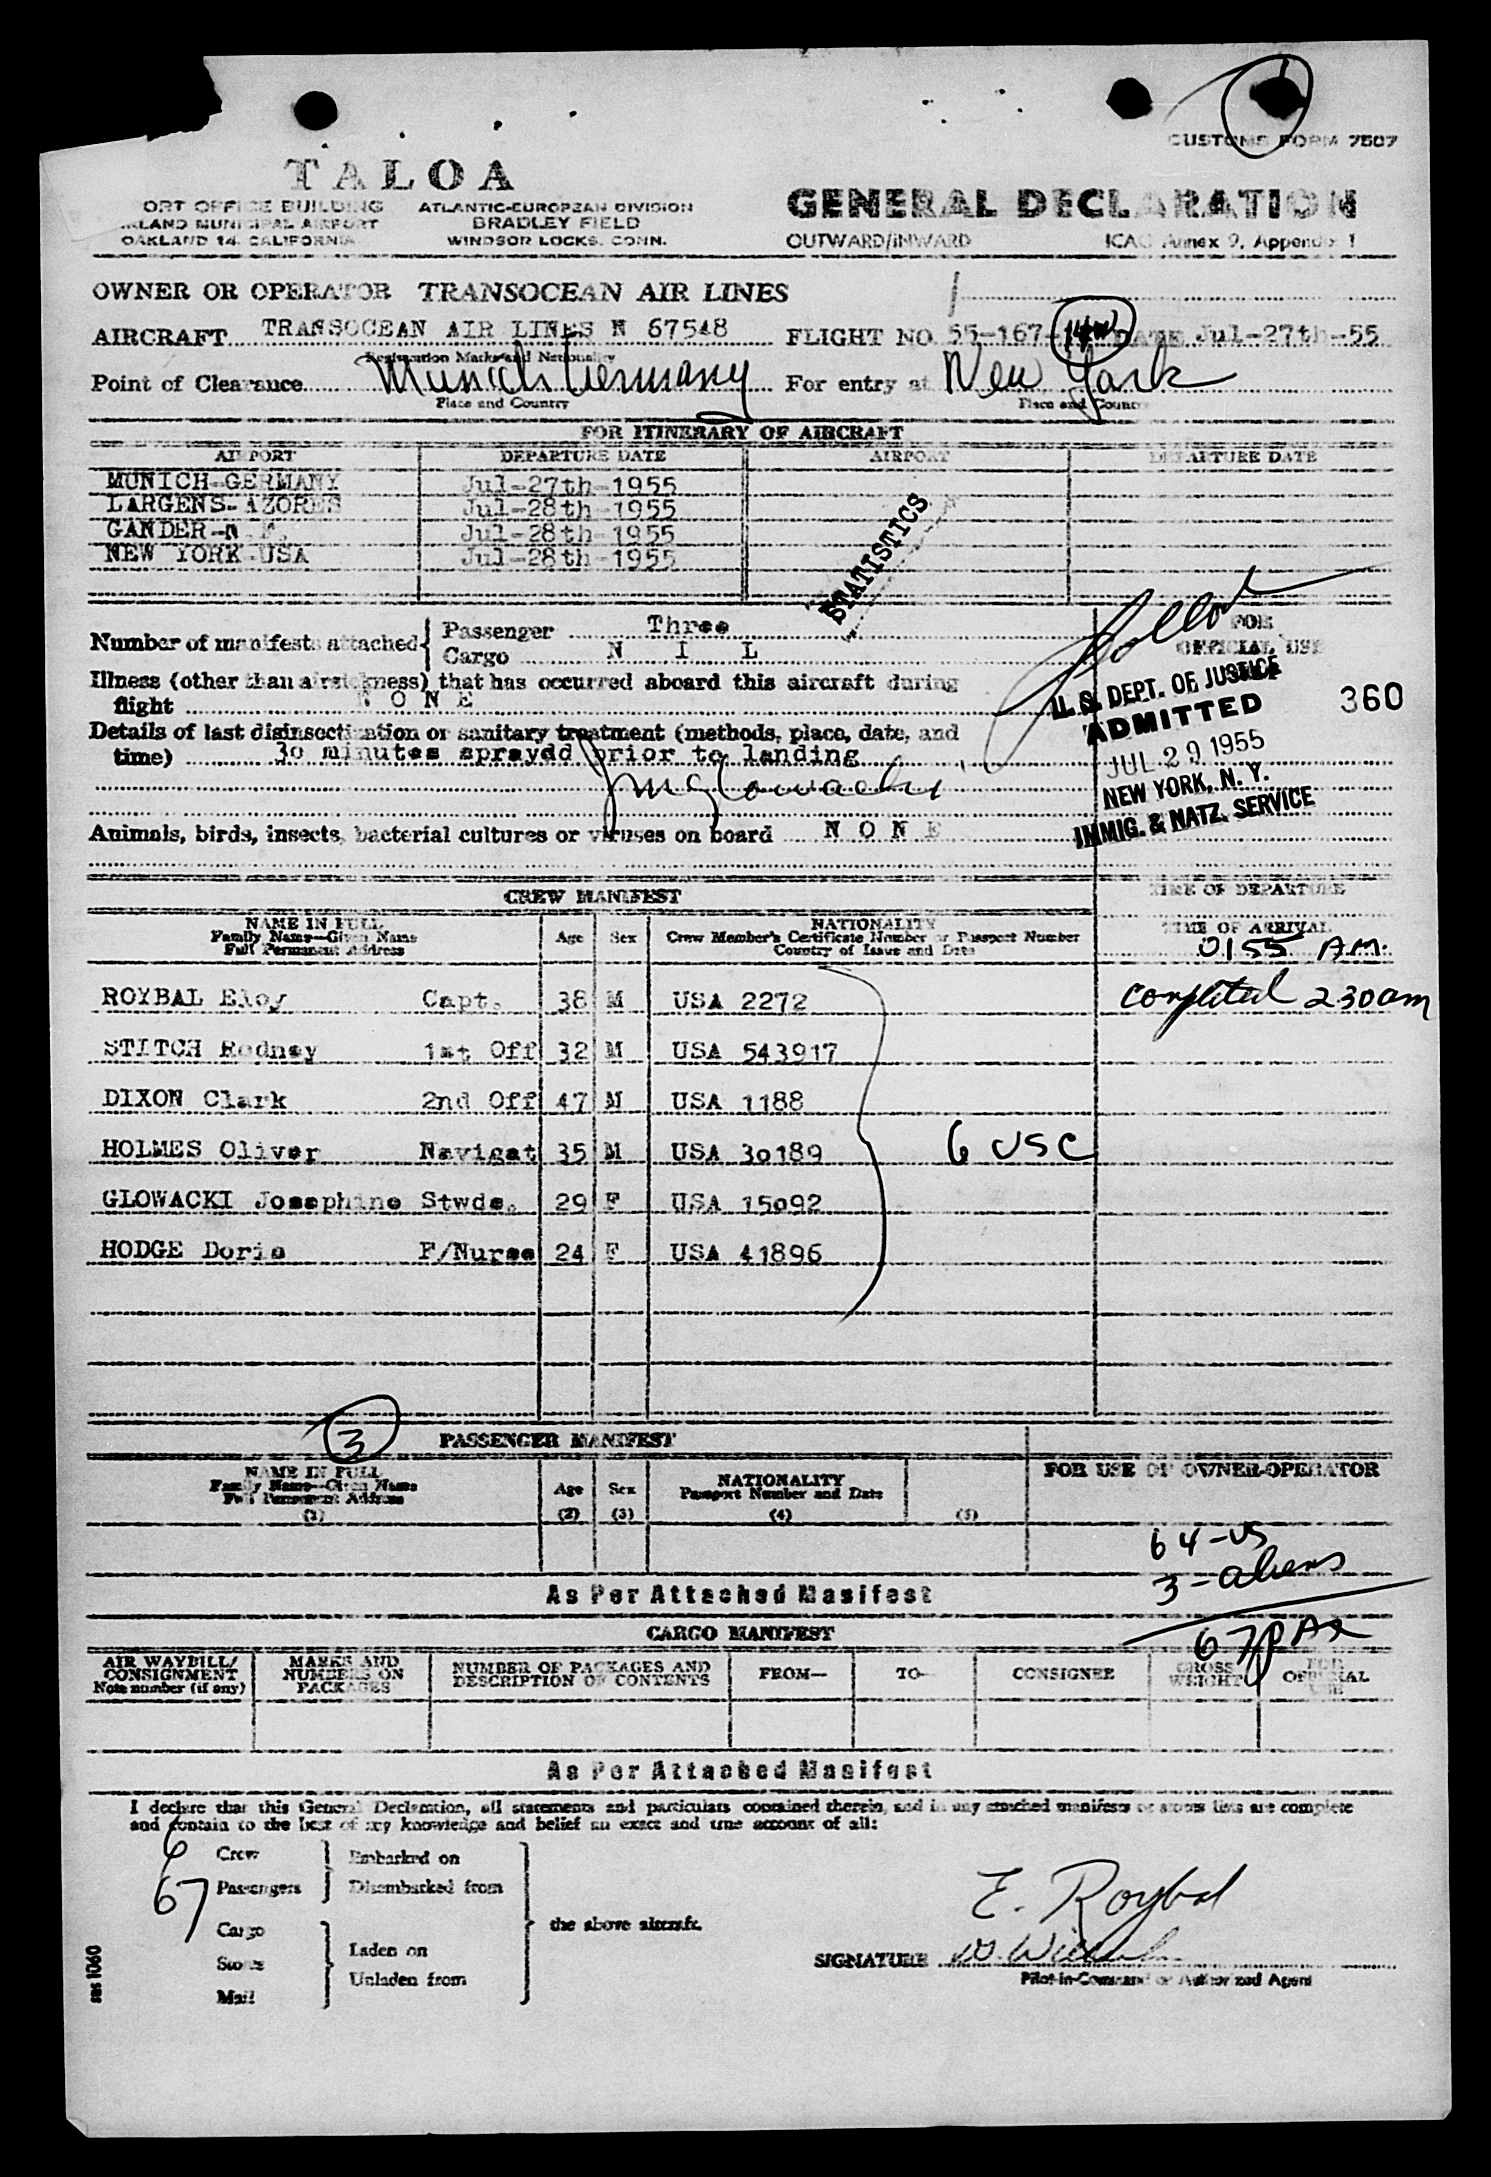 CUSTOMS FORM 7507
TALOA
ORT OFFICE BUILDING
LAND MUNICIPAL AIRPORT
OAKLAND 14, CALIFORNIA
ATLANTIC-EUROPEAN DIVISION
BRADLEY FIELD
WINDSOR LOCKS, CONN.
GENERAL DECLARATION
OUTWARD/INWARD ICAO Annex 9, Appendix 1
OWNER OR OPERATOR TRANSOCEAN AIR LINES
AIRCRAFT TRANSOCEAN AIR LINES N 67548 FLIGHT NO 55-167- DATE Jul-27th-55
Registration Marks and Nationality
Point of Clearance Munich Germany For entry at New York
Place and Country Place and Country
FOR ITINERARY OF AIRCRAFT
AIRPORT DEPARTURE DATE AIRPORT DEPARTURE DATE
MUNICH-GERMANY Jul-27th-1955
LARGENS-AZORES Jul-28th-1955
GANDER-N.F. Jul-28th-1955
NEW YORK-USA Jul-28th-1955
STATISTICS
Number of manifests attached { Passenger Three
Cargo N I L
FOR
OFFICIAL USE
Illness (other than airsickness) that has occurred aboard this aircraft during
flight N O N E
U. S. DEPT. OF JUSTICE
ADMITTED
JUL 29 1955
NEW YORK, N. Y.
IMMIG. & NATZ. SERVICE
360
Details of last disinsectization or sanitary treatment (methods, place, date, and
time) 30 minutes spraydd prior to landing
JM Glowacki
Animals, birds, insects, bacterial cultures or viruses on board N O N E
CREW MANIFEST
TIME OF DEPARTURE
NAME IN FULL
Family Name—Given Name
Full Permanent Address
Age Sex
NATIONALITY
Crew Member's Certificate Number or Passport Number
Country of Issue and Date
TIME OF ARRIVAL
0155 A.M.
completed 230am
ROYBAL Eloy Capt. 38 M USA 2272
STITCH Rodney 1st Off 32 M USA 543917
DIXON Clark 2nd Off 47 M USA 1188
HOLMES Oliver Navigat 35 M USA 30189 6 USC
GLOWACKI Josephine Stwds. 29 F USA 15092
HODGE Doris F/Nurse 24 F USA 41896
3
PASSENGER MANIFEST
NAME IN FULL
Family Name—Given Name
Full Permanent Address
(1)
Age
(2)
Sex
(3)
NATIONALITY
Passport Number and Date
(4)
(5)
FOR USE OF OWNER-OPERATOR
64-US
3-aliens
67 PAX
As Per Attached Manifest
CARGO MANIFEST
AIR WAYBILL/
CONSIGNMENT
Note number (if any)
MARKS AND
NUMBERS ON
PACKAGES
NUMBER OF PACKAGES AND
DESCRIPTION OF CONTENTS
FROM— TO— CONSIGNEE
GROSS
WEIGHT
FOR
OFFICIAL
USE
As Per Attached Manifest
I declare that this General Declaration, all statements and particulars contained therein, and in any attached manifests or stores lists are complete
and contain to the best of my knowledge and belief an exact and true account of all:
6 Crew
67 Passengers
Embarked on
Disembarked from
Cargo
Stores
Mail
Laden on
Unladen from
the above aircraft.
E. Roybal
SIGNATURE
Pilot-in-Command or Authorized Agent
sas 1060